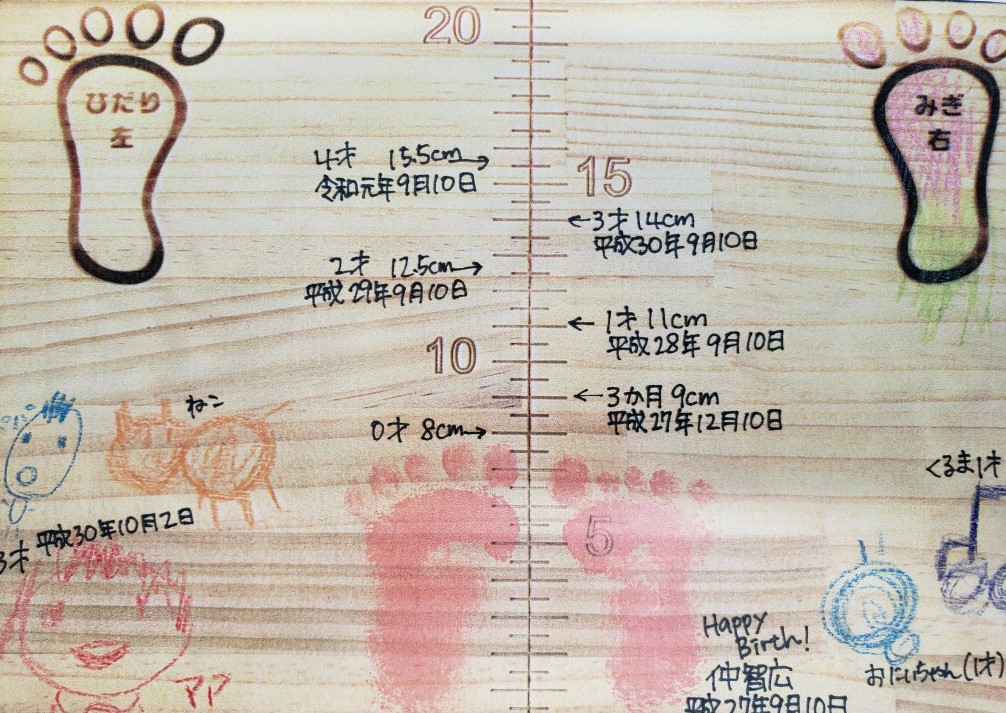 20
ひだり
左
みぎ
右
4才 15.5cm→
令和元年9月10日
15
←3才 14cm
平成30年9月10日
2才 12.5cm→
平成29年9月10日
←1才 11cm
平成28年9月10日
10
←3か月 9cm
平成27年12月10日
ねこ
0才 8cm→
←くるま1才
平成30年10月2日
3才
5
Happy
Birth!
仲智広
平成27年9月10日
おにいちゃん(1才)
ママ